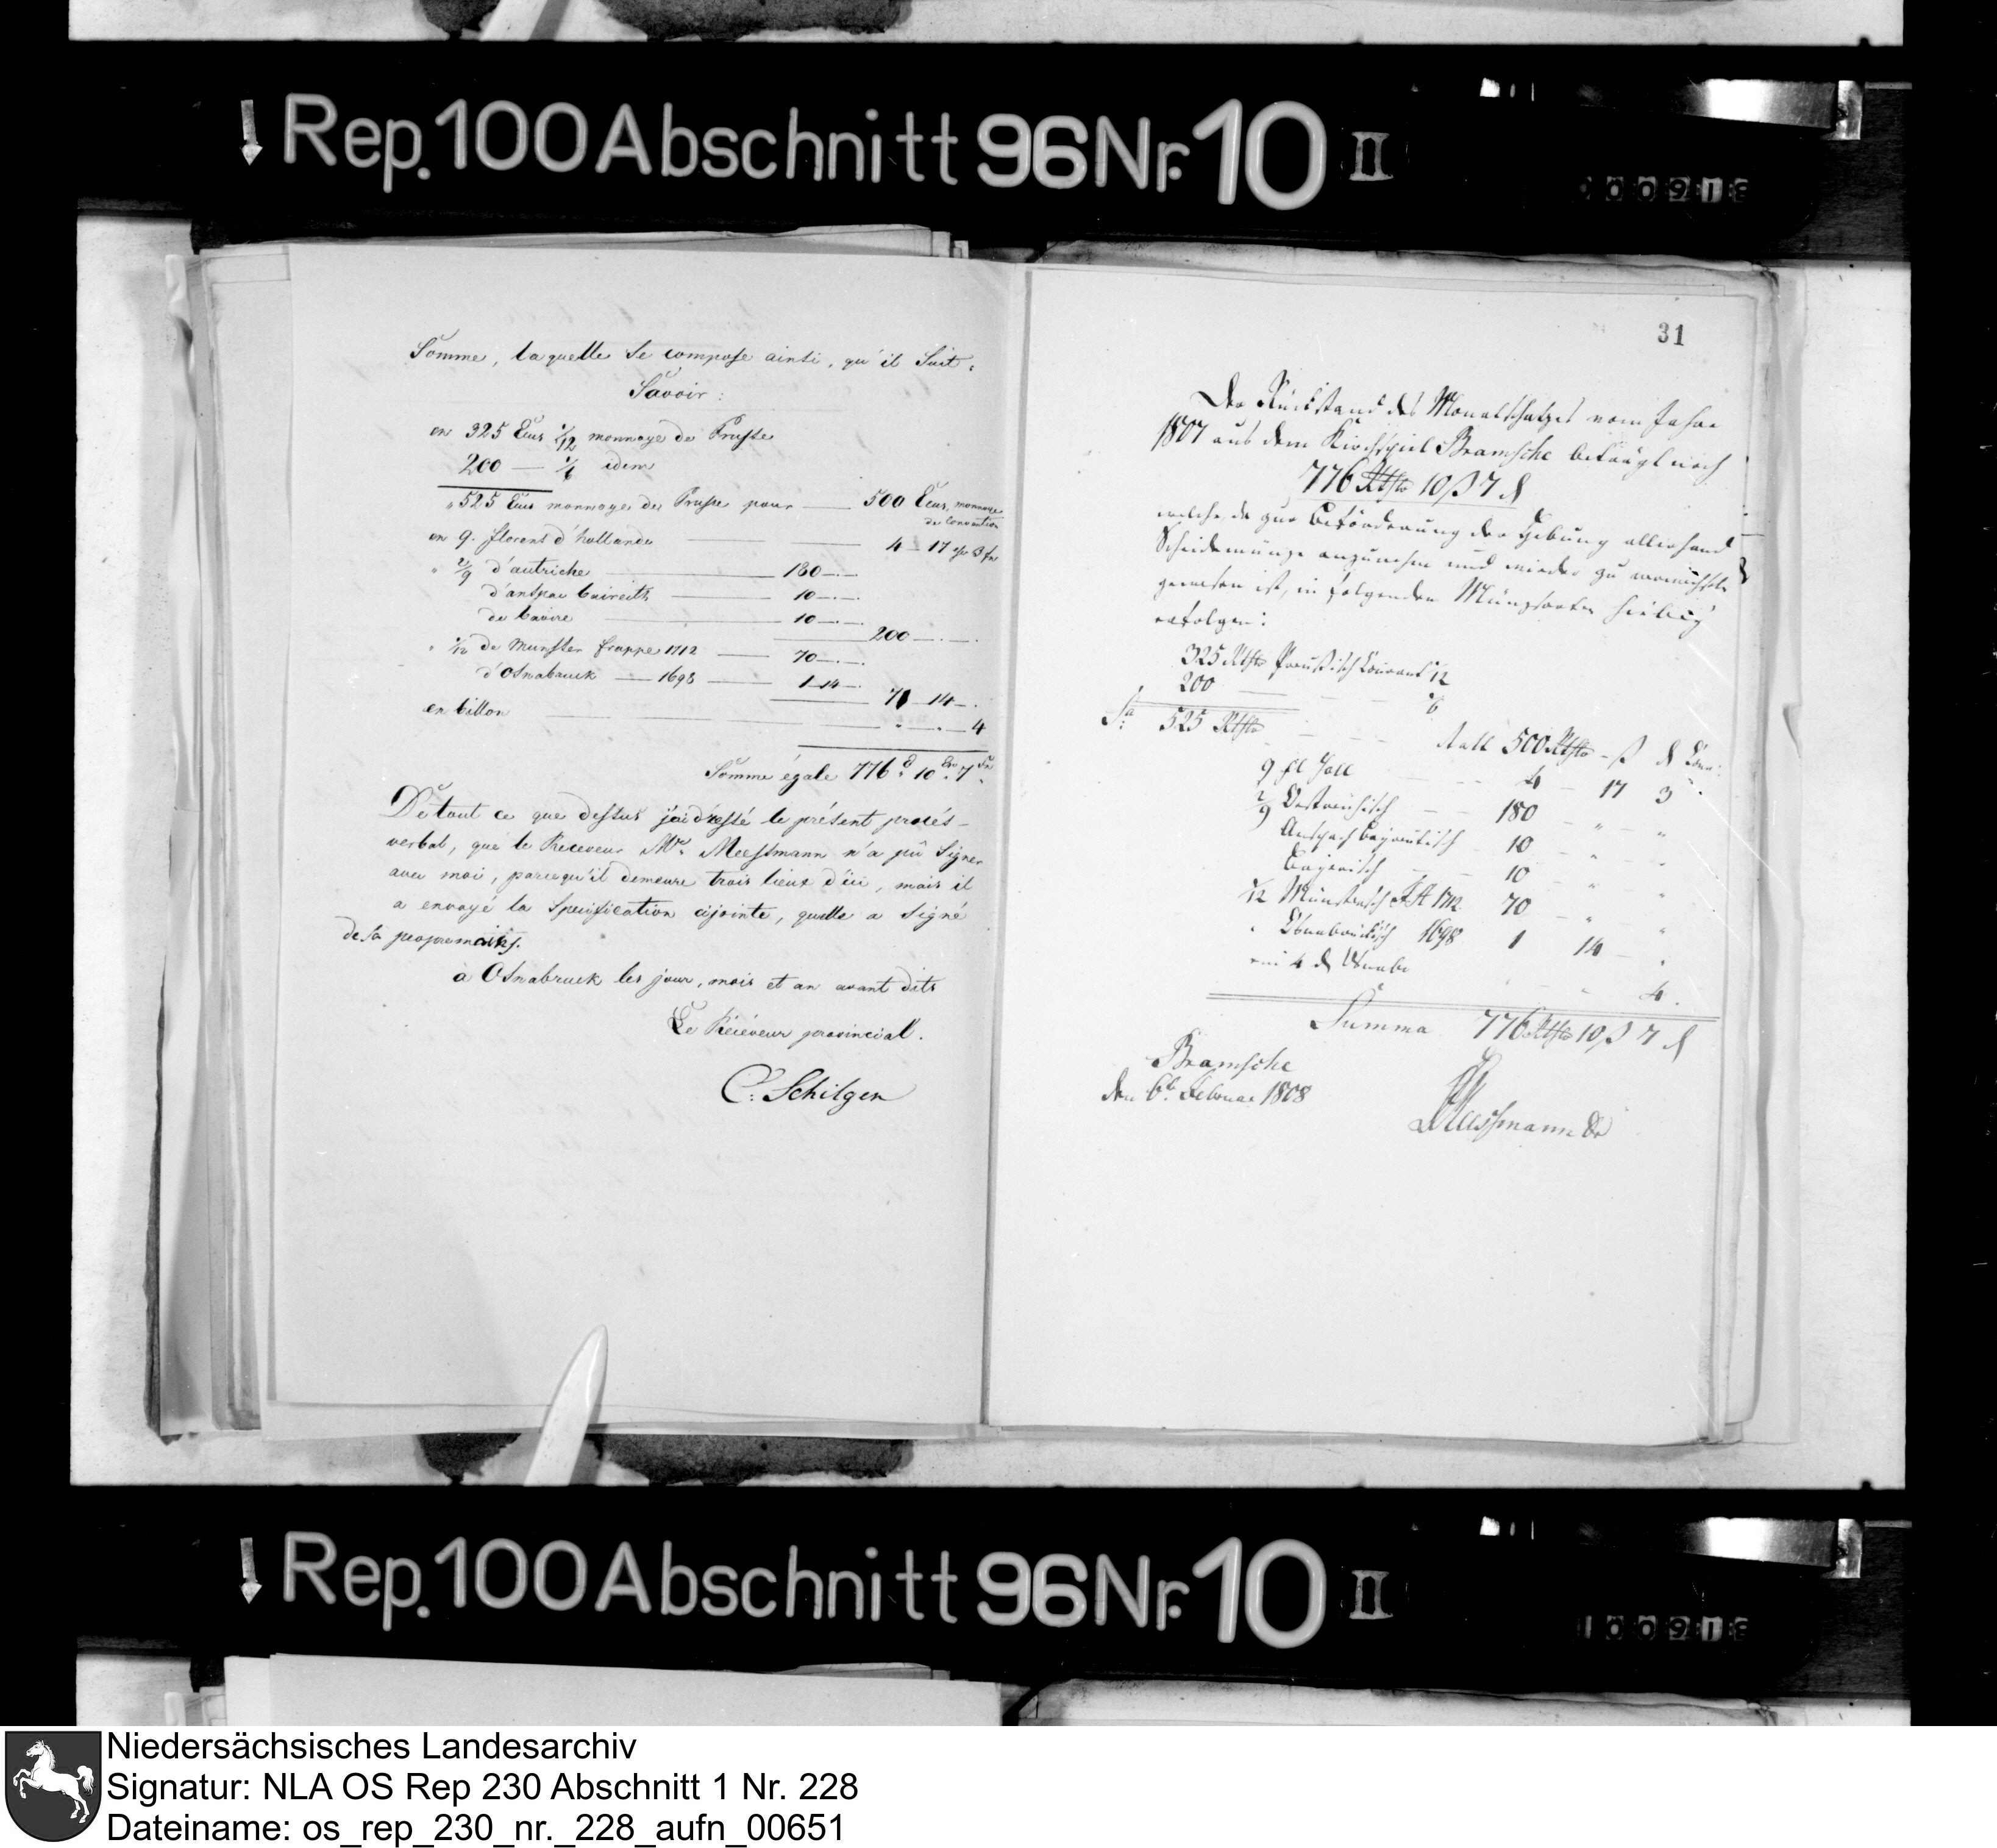 Rep. 100 Abschnitt 96 Nr. 10 II
Somme, laquelle se compose ainsi, qu'il suit:
Savoir:
en 325 Ecus 1/12 monnoye de Prusse
200 — 1/6 idem
" 525 Ecus monnoye de Prusse pour — 500 Ecus, monnoye
de Convention
en 9. florens d'hollande — 4 — 17 3
" 2/9 d'autriche — 180 — . —
d'anspac baireith — 10 — . —
de baviere — 10 — . —
200 — . — .
" 1/12 de Munster frappe 1712 — 70 — . —
d'Osnabruck — 1698 — 1 — 14 — .
71 — 14 — .
en billon — " — . — 4
Somme égale 776 10 7
De tout ce que dessus j'ai dressé le présent procés-
verbal, que le Receveur Mr. Meessmann n'a pû signer
avec moi, parcequ'il demeure trois lieux d'ici, mais il
a envoyé la specification cijointe, quelle a signé
de sa propre main.
à Osnabruck les jour, mois et an avant dits
Le Récéveur provincial.
C. Schilgen
31
Der Rückstand des Monatschatzes vom Jahre
1807 aus dem Kirchspiel Bramsche beträgt noch
776 Rthlr 10 ß 7 d
welche, da zur Beförderung der Hebung allerhand
Scheidemünze anzunehmen und wieder zu verwechseln
gewesen ist, in folgenden Münzsorten hiebey
erfolgen:
325 Rthlr Preußisch Courant 1/12
200 — — — 1/6
Sa. 525 Rthlr — — — 500 Rthlr — ß d
9 fl Holl — — 4 — 17 3
2/9 Oestreichisch — 180 — " — "
Anspach Bayreutisch — 10 — " — "
Bayerisch — 10 — " — "
1/12 Münstersch 1712 70 — " — "
" Osnabrückisch 1698 1 14 — "
4 d Osnabr — " — 4.
Summa 776 Rthlr 10 ß 7 d
Bramsche
den 6t. Februar 1808
Meessmann
Rep. 100 Abschnitt 96 Nr. 10 II
Niedersächsisches Landesarchiv
Signatur: NLA OS Rep 230 Abschnitt 1 Nr. 228
Dateiname: os_rep_230_nr._228_aufn_00651